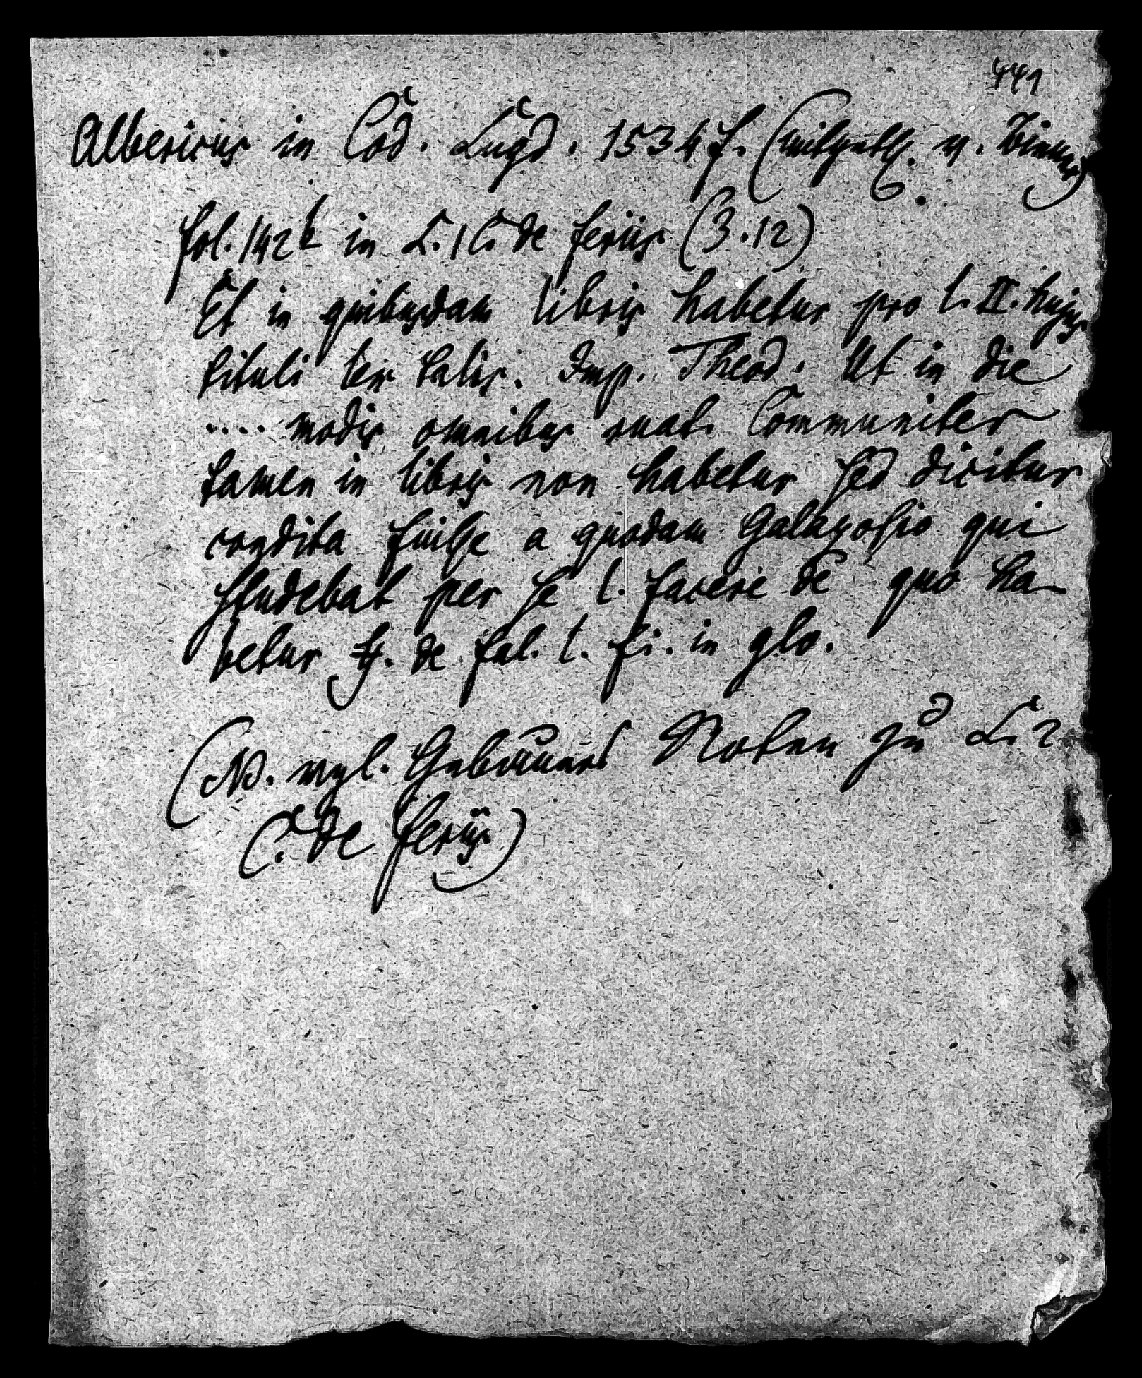 441
Albericus in Cod. Lugd. 1534 f. (mitgeth. v. Biener)
fol. 142b in L. 1 C. de feriis (3.12)
Et in quibusdam libris habetur pro l. II. hujus
tituli lex talis. Imp. Theod. Ut in die
.... modis omnibus Communiter
tamen in libris non habetur sed dicitur
condita fuisse a quodam Galagosio qui
studebat per se l. facere de quo ha-
betur ff. de fal. l. fi. in glo.
(NB. vgl. Gebauers Noten zu L. 2
C. de feriis)